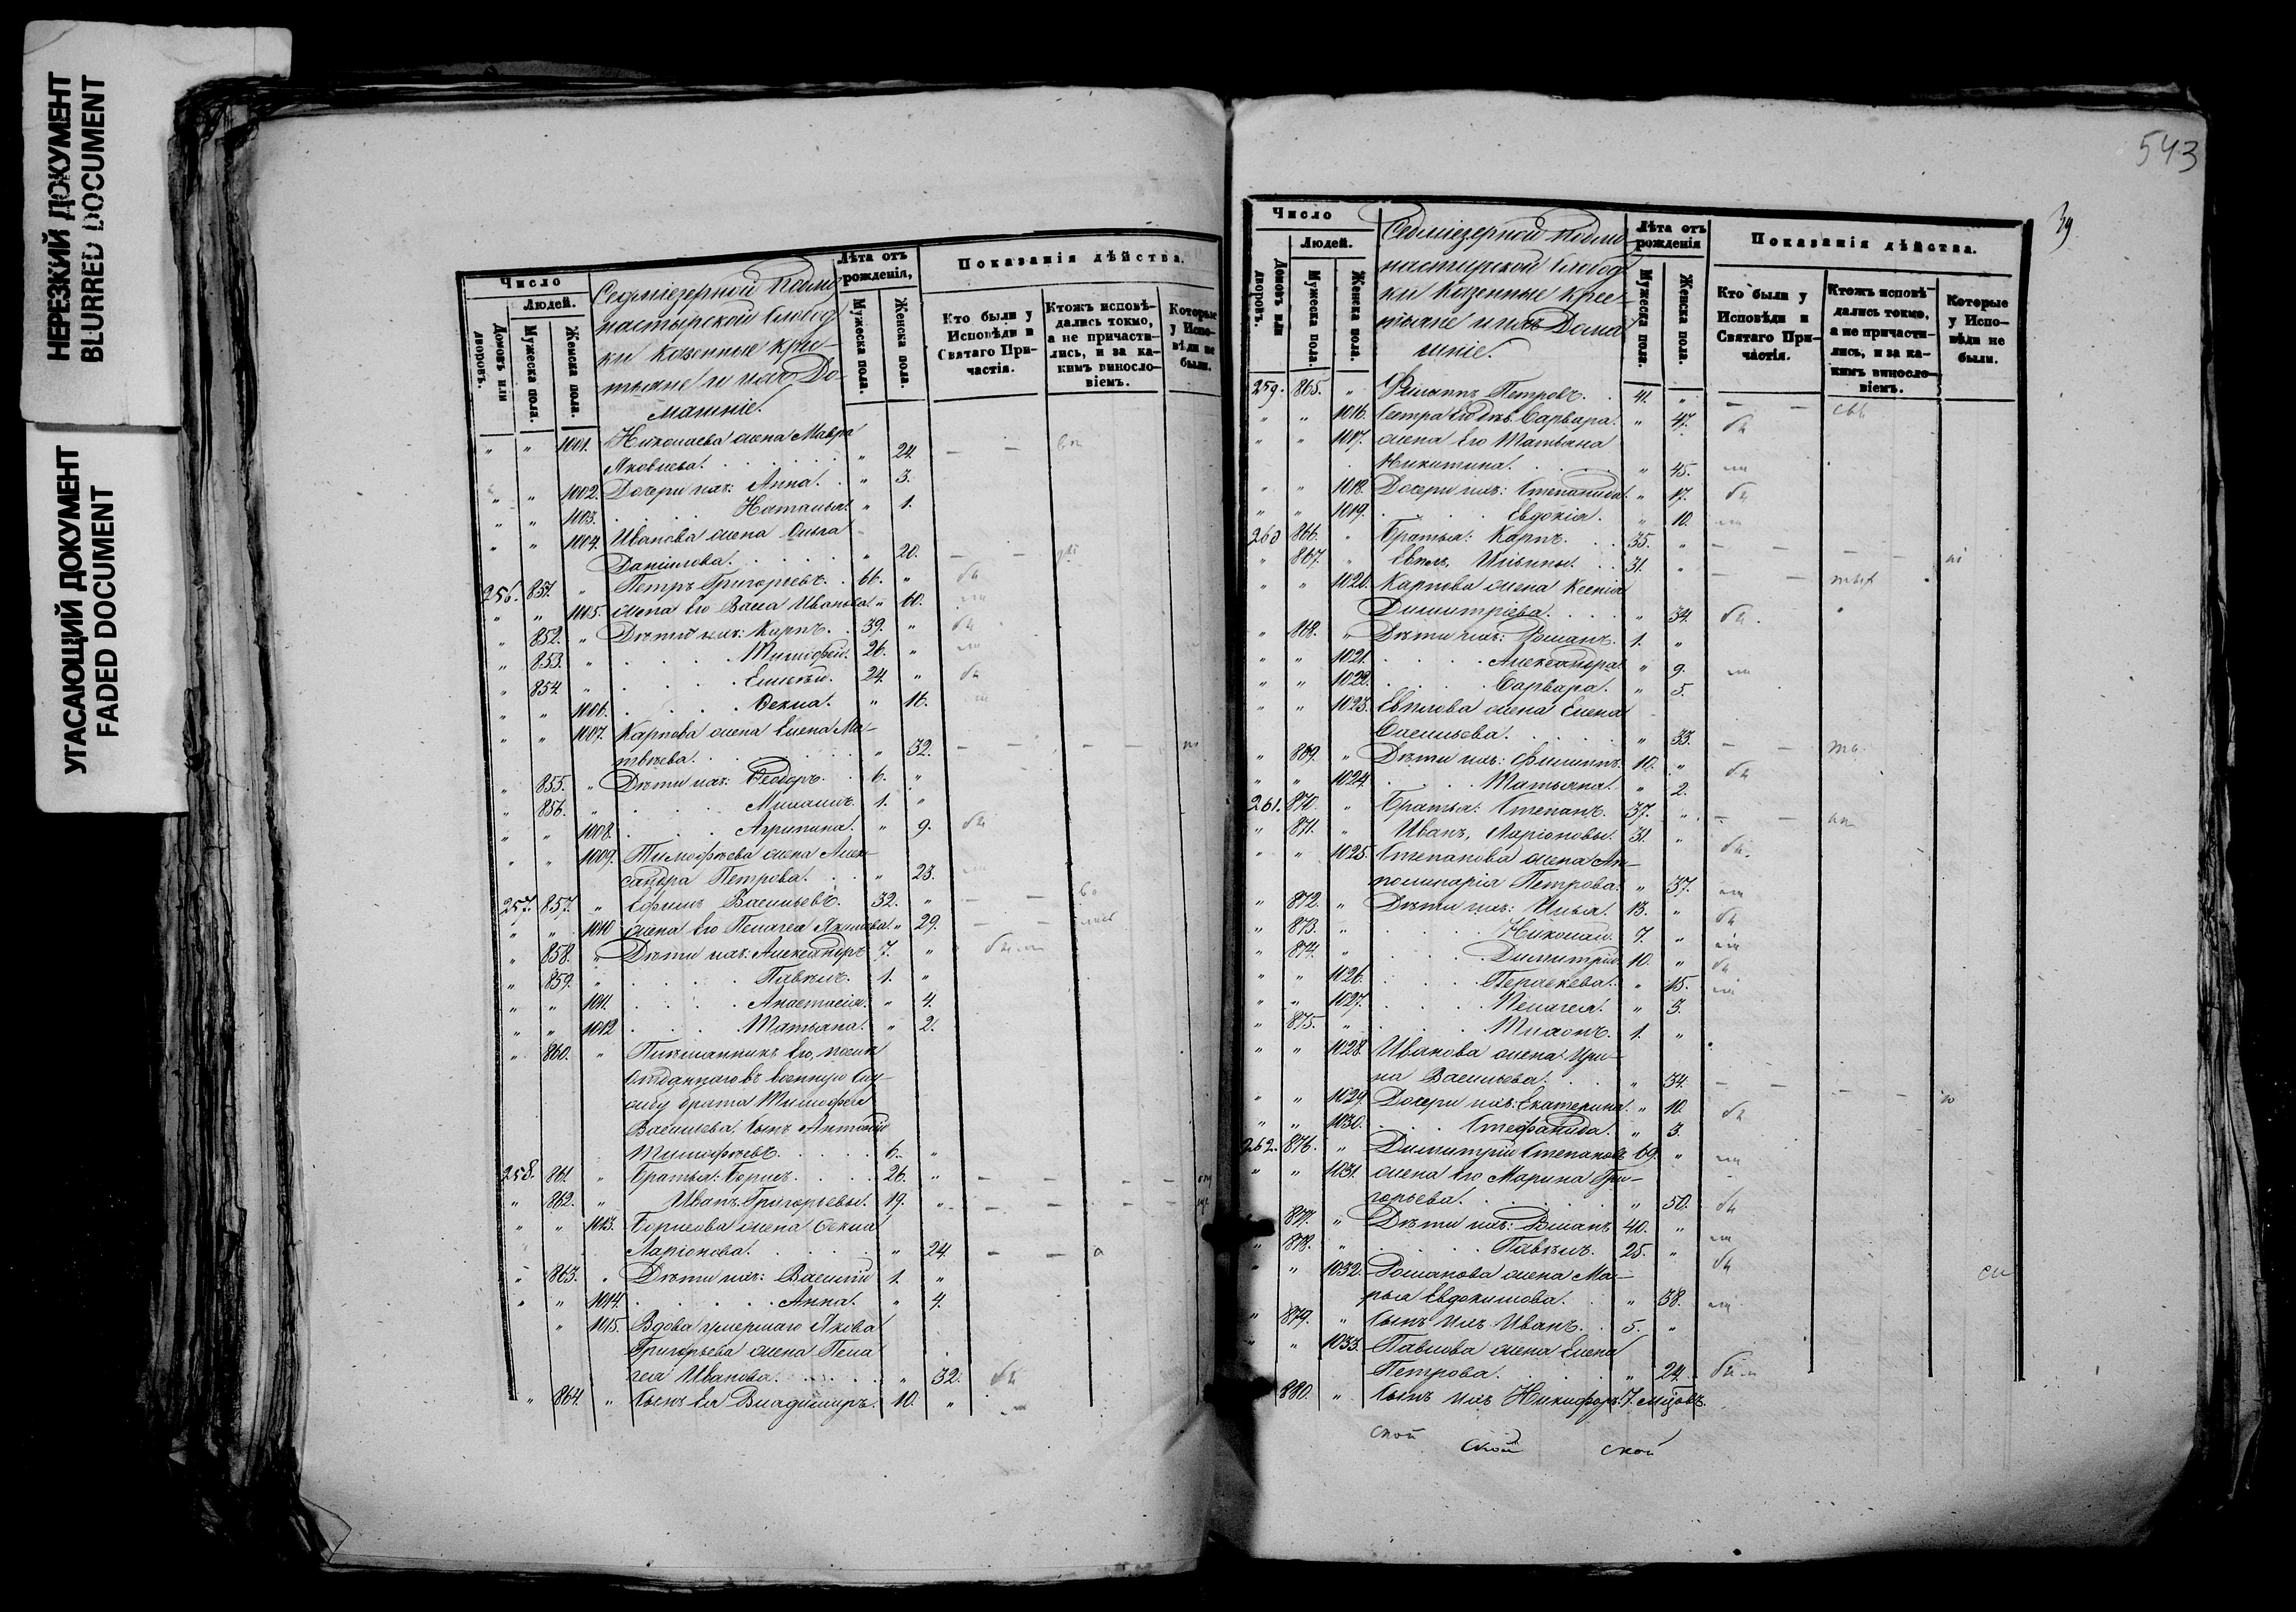 НЕРЕЗКИЙ ДОКУМЕНТ
BLURRED DOCUMENT
УГАСАЮЩИЙ ДОКУМЕНТ
FADED DOCUMENT
Число
Людей.
Домовъ или дворовъ.
Мужеска пола.
Женска пола.
Седміезерной Подмо
настырской Слобод
ки Казенные Крес
тьяне и ихъ До-
машніе.
Лѣта отъ рожденія,
Мужеска пола.
Женска пола.
Показанія дѣйства.
Кто были у Исповѣди и Святаго При-частія.
Ктожъ исповѣ-дались токмо, а не причасти-лись, и за ка-кимъ винословіемъ.
Которые у Испо-вѣди не были.
" " 1001. Николаева жена Мавра
Яковлева. " 24.
" " 1002. Дочери ихъ: Анна. " 3.
" " 1003. Наталья. " 1.
" " 1004. Иванова жена Ольга
Даніилова. " 20.
256. 851. " Петръ Григорьевъ. 66. "
" " 1005. жена его Васса Иванова " 60.
" 852. " Дѣти ихъ: Карпъ. 39. "
" 853. " Тимофей. 26. "
" 854. " Елисѣй. 24. "
" " 1006. Ѳекла. " 16.
" " 1007. Карпова жена Елена Ма-
твѣева. " 32.
" 855. " Дѣти ихъ: Ѳеодоръ. 6. "
" 856. " Михаилъ. 1. "
" " 1008. Агрипина. " 9.
" " 1009. Тимофѣева жена Алек-
сандра Петрова. " 23.
257. 857. " Ефимъ Васильевъ. 32. "
" " 1010 жена его Пелагея Якимова " 29.
" 858. " Дѣти ихъ: Александръ 7. "
" 859. " Павелъ. 1. "
" " 1011. Анастасія. " 4.
" " 1012 Татьяна. " 2.
" 860. " Племянникъ его, послѣ
отданнаго въ военную Слу-
жбу брата Тимофея
Васильева Сынъ Антоній
Тимофѣевъ. 6. "
258. 861. " Братья: Борисъ. 26. "
" 862. " Иванъ Григорьевы. 19. "
" " 1013. Борисова жена Ѳекла
Ларіонова. " 24.
" 863. " Дѣти ихъ: Василій 1. "
" " 1014. Анна. " 4.
" 1015. Вдова умершаго Якова
Григорьева жена Пела
гея Иванова. " 32.
" 864. " Сынъ ея Владимиръ. 10. "
543
39
Число
Людей.
Домовъ или дворовъ.
Мужеска пола.
Женска пола.
Седміезерной Подмо
настырской Слобод
ки Казенные Крес-
тьяне и ихъ Дома
шніе.
Лѣта отъ рожденія
Мужеска пола.
Женска пола.
Показанія дѣйства.
Кто были у Исповѣди и Святаго При-частія.
Ктожъ исповѣ-дались токмо, а не причасти-лись, и за ка-кимъ винословіемъ.
Которые у Испо-вѣди не были.
259. 865. " Филиппъ Петровъ. 41. "
" " 1016. Сестра его дѣв. Варвара. " 47.
" " 1017. жена его Татьяна
Никитина. " 45.
" " 1018. Дочери ихъ: Степанида. " 17.
" " 1019. Евдокія. " 10.
260 866. " Братья: Карпъ. 35. "
" 867. " Евплъ Ильины. 31. "
" " 1020. Карпова жена Ксенія
Димитріева. " 34.
" 868. " Дѣти ихъ: Романъ. 1. "
" " 1021. Александра " 9.
" " 1022. Варвара. " 5.
" " 1023. Евплова жена Елена
Васильева. " 33.
" 869. " Дѣти ихъ: Филиппъ. 10. "
" " 1024. Татьяна. " 2.
261. 870. " Братья: Степанъ. 37. "
" 871. " Иванъ, Ларіоновы. 31. "
" " 1025. Степанова жена Ап-
полинарія Петрова. " 37.
" 872. " Дѣти ихъ: Илья. 13. "
" 873. " Николай. 7. "
" 874. " Димитрій. 10. "
" " 1026. Параскева. " 15.
" " 1027. Пелагея. " 3.
" 875. " Миронъ. 1. "
" " 1028. Иванова жена Ири-
на Васильева. " 34.
" " 1029. Дочери ихъ: Екатерина. " 10.
" " 1030. Стефанида. " 3.
262. 876. " Димитрій Степановъ 69. "
" " 1031. жена его Марина Гри-
горьева. " 50.
" 877. " Дѣти ихъ: Романъ 40. "
" 878. " Павелъ. 25. "
" " 1032. Романова жена Ма-
рья Евдокимова. " 38.
" 879. " Сынъ ихъ Иванъ. 5. "
" " 1033. Павлова жена Елена
Петрова. " 24.
880. " Сынъ ихъ Никифоръ. 7. мцовъ.
ской ской ской